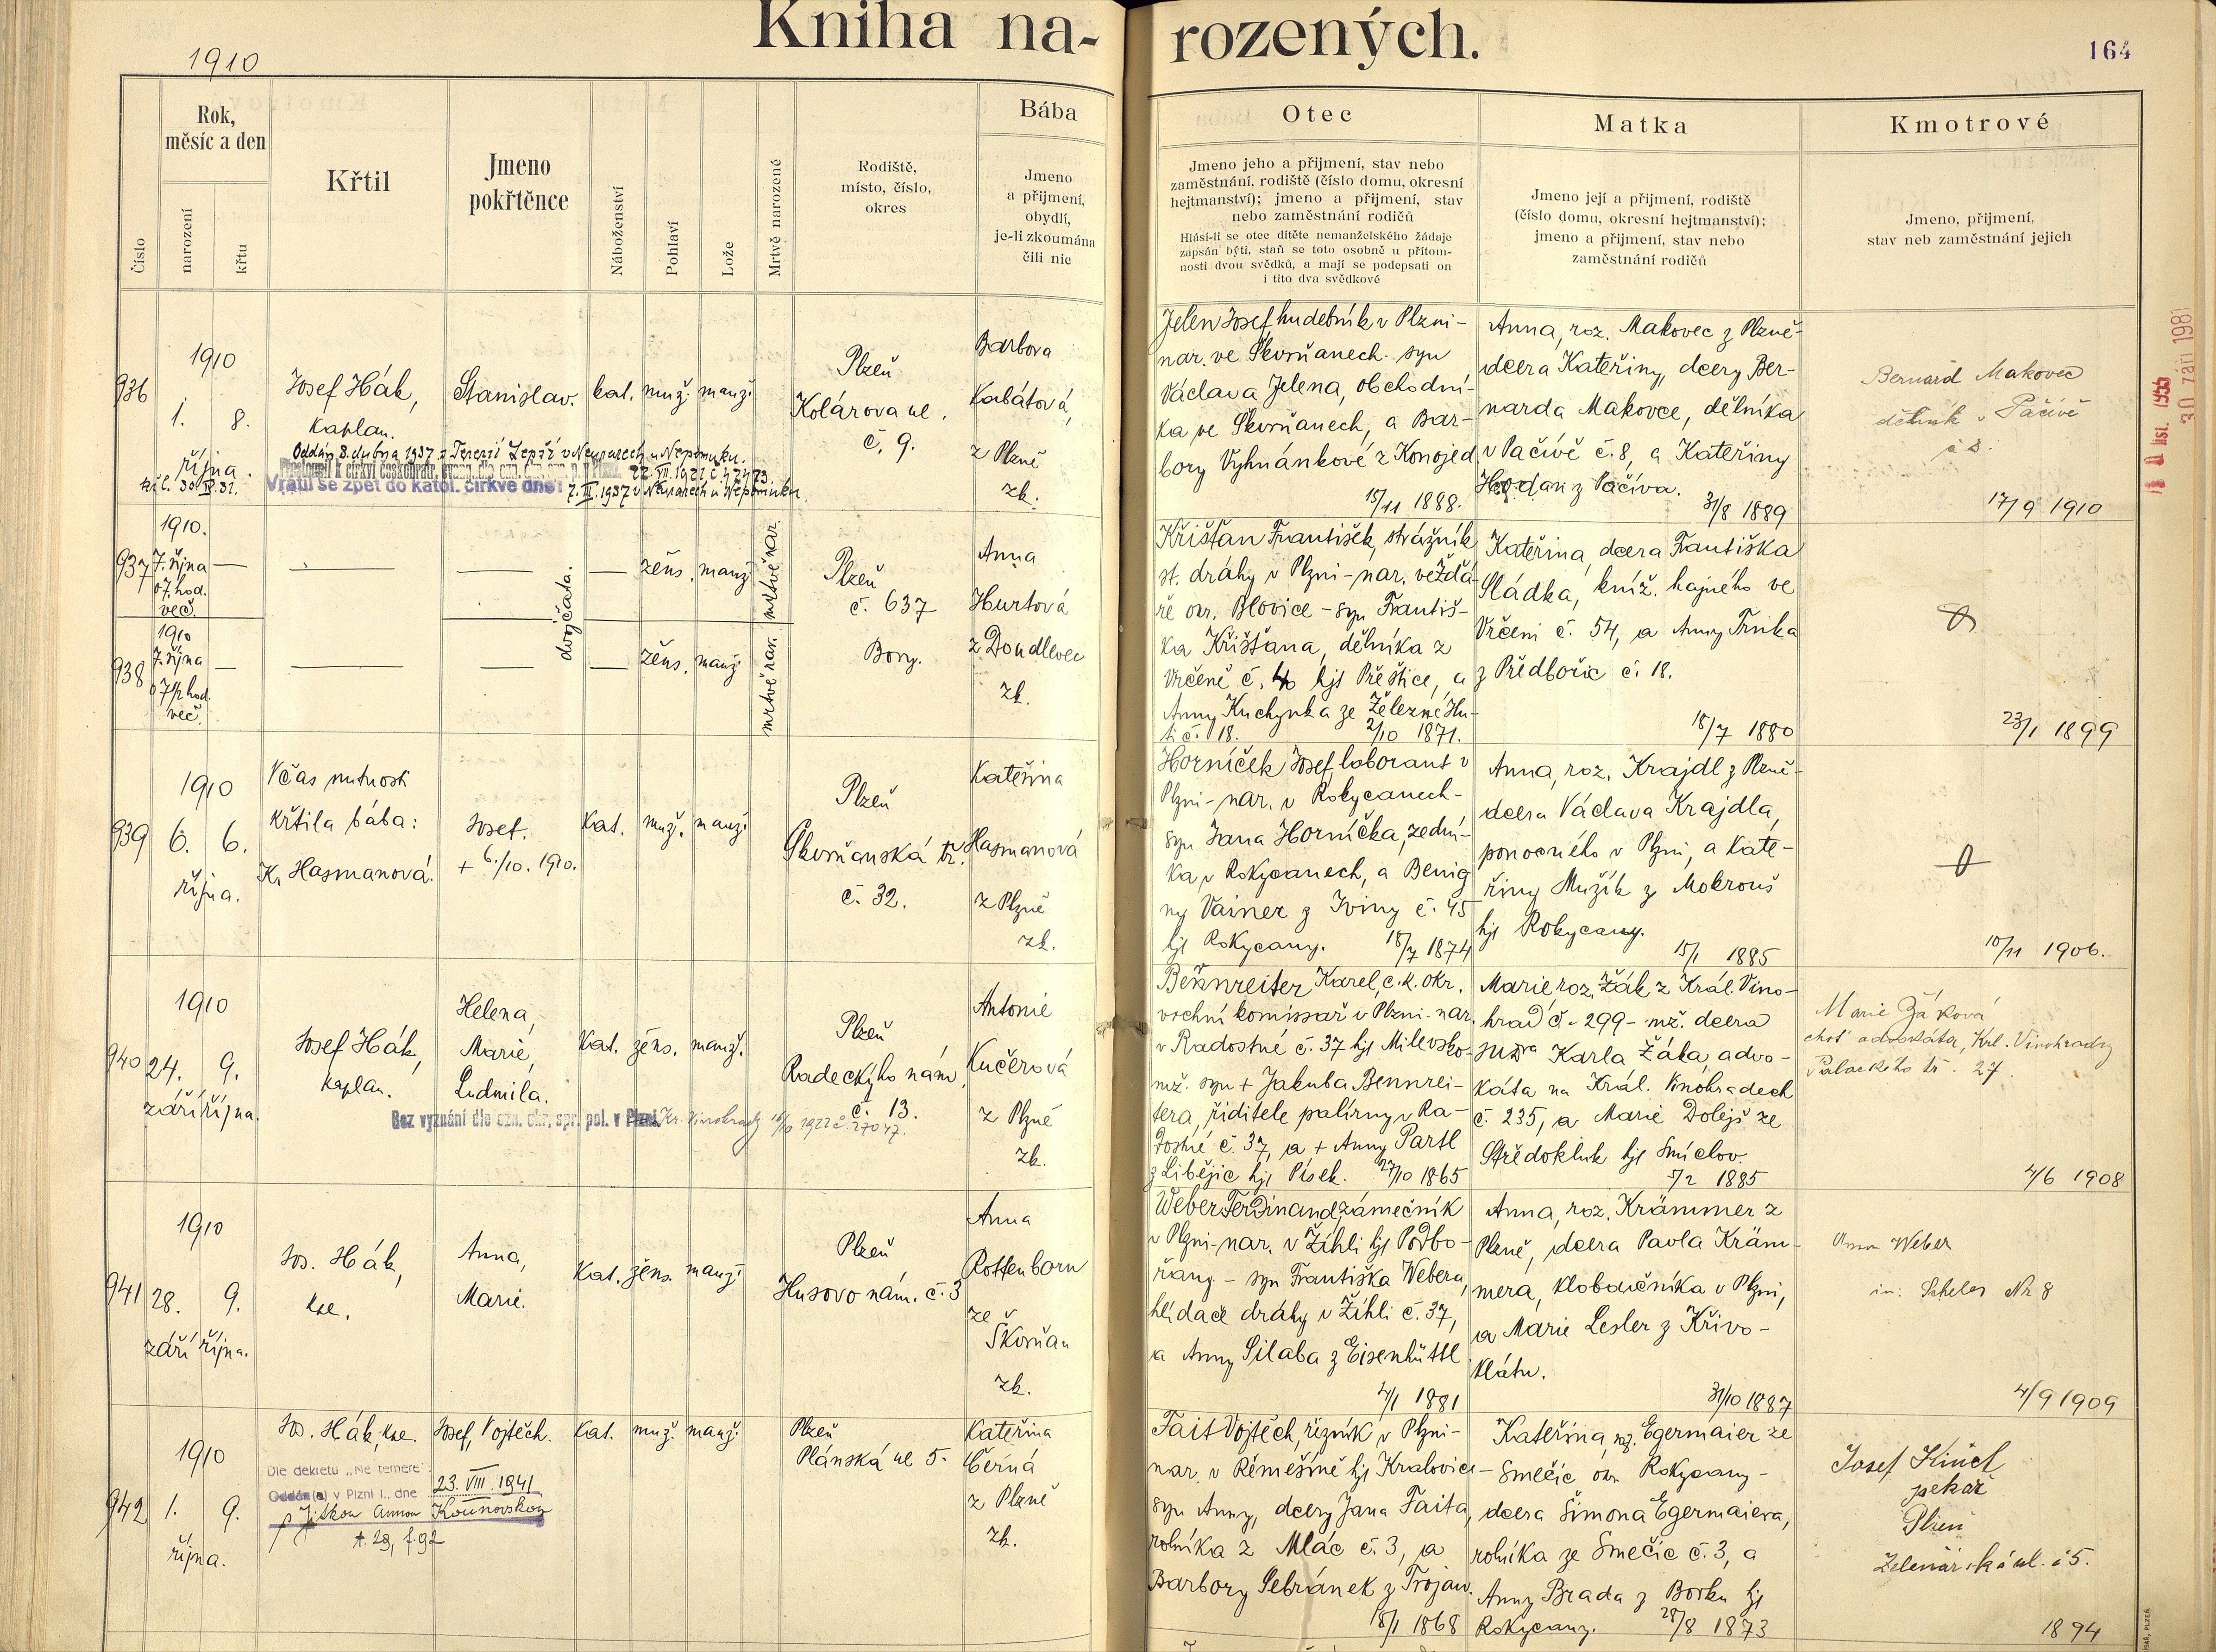 Kniha na-
rozených.
164
1910
Číslo
Rok,
měsíc a den
narození
křtu
Křtil
Jmeno
pokřtěnce
Náboženství
Pohlaví
Lože
Mrtvě narozené
Rodiště,
místo, číslo,
okres
Bába
Jmeno
a přijmení,
obydlí,
je-li zkoumána
čili nic
Otec
Jmeno jeho a přijmení, stav nebo
zaměstnání, rodiště (číslo domu, okresní
hejtmanství); jmeno a přijmení, stav
nebo zaměstnání rodičů
Hlásí-li se otec dítěte nemanželského žádaje
zapsán býti, staň se toto osobně u přítom-
nosti dvou svědků, a mají se podepsati on
i tito dva svědkové
Matka
Jmeno její a přijmení, rodiště
(číslo domu, okresní hejtmanství);
jmeno a přijmení, stav nebo
zaměstnání rodičů
Kmotrové
Jmeno, přijmení,
stav neb zaměstnání jejich
936
1910
1. 8.
října
Josef Hák,
kaplan.
Stanislav.
kat. muž. manž.
Oddán 8. dubna 1937 s Terezií v Neurazech u Nepomuku.
Vrátil se zpět do katol. církve dne
7. III. 1937 v Neurazech u Nepomuku.
Plzeň
Kolárova ul.
č. 9.
Barbora
Kabátová,
z Plzně
zk.
Jelen Josef, hudebník v Plzni-
nar. ve Skvrňanech- syn
Václava Jelena, obchodní-
ka ve Skvrňanech, a Bar-
bory Vyhnánkové z Konojed
15/11 1888.
Anna, roz. Makovec z Plzně-
dcera Kateřiny, dcery Ber-
narda Makovce, dělníka
v Pačivě č. 8, a Kateřiny
Hodan z Pačíva.
31/8 1889
Bernard Makovec
dělník v Pačívě
č 8.
17/9 1910
30 září 1981
937
1910.
7. října
o 7. hod.
več.
žens. manž.
mrtvě nar.
dvojčata.
938
1910
7. října
o 7 1/2 hod.
več.
žens. manž.
mrtvě nar.
Plzeň
č. 637
Bory.
Anna
Hurtová
z Doudlevec
zk.
Křišťan František, strážník
st. dráhy v Plzni-nar. ve Ždá-
ře okr. Blovice - syn Františ-
ka Křišťana, dělníka z
Vrčeně č. 40 hjt Přeštice, a
Anny Kuchynka ze Železné Hu-
ti č. 18. 2/10 1871.
Kateřina, dcera Františka
Sládka, kníž. hajného ve
Vrčeni č. 54, a Anny Trnka
z Předbořic č. 18.
18/7 1880
23/1 1899
939
1910
6. 6.
října.
V čas nutnosti
křtila bába:
K. Hasmanová.
Josef.
+ 6./10. 1910.
Kat. muž. manž.
Plzeň
Skvrňanská tř.
č. 32.
Kateřina
Hasmanová
z Plzně
zk.
Horníček Josef, laborant v
Plzni-nar. v Rokycanech-
syn Jana Horníčka, zední-
ka v Rokycanech, a Benig
ny Vainer z Iviny č. 45
hjt Rokycany. 18/7 1874
Anna, roz. Krajdl z Plzně-
dcera Václava Krajdla,
ponocného v Plzni, a Kate-
řiny Mužík z Mokrouš
hjt Rokycany.
15/1 1885
10/11 1906.
940
1910
24. 9.
září října.
Josef Hák,
kaplan.
Helena,
Marie,
Ludmila.
Kat. žens. manž.
Bez vyznání dle ozn. okr. spr. pol. v Plzni Kr. Vinohrady
Plzeň
Radeckýho nám.
č. 13.
Antonie
Kučerová
z Plzně
zk.
Bennreiter Karel, c. k. okr.
vrchní komissař v Plzni-nar.
v Radostné č. 37 hjt Milevsko-
mž. syn + Jakuba Bennrei-
tera, řiditele palírny v Ra-
dostné č. 37, a + Anny Partl
z Libějic hjt Písek. 27/10 1865
Marie roz. Žák z Král. Vino-
hrad č. 299- mž. dcera
JUDra Karla Žáka, advo-
káta na Král. Vinohradech
č. 235, a Marie Dolejš ze
Středokluk hjt Smíchov.
5/2 1885
Marie Žáková
choť advokáta, Král. Vinohrady
Palackého tř. 27.
4/6 1908
941
1910
28. 9.
září října.
Jos. Hák,
kne.
Anna,
Marie.
Kat. žens. manž.
Plzeň
Husovo nám. č. 3
Anna
Rottenborn
ze
Škvrňan
zk.
Weber Ferdinand, zámečník
v Plzni-nar. v Žihli hjt Podbo-
řany - syn Františka Webera,
hlídače dráhy v Žihli č. 37,
a Anny Silaba z Eisenhüttl
4/1 1881
Anna, roz. Krämmer z
Plzně, dcera Pavla Kräm-
mera, kloboučníka v Plzni,
a Marie Lesler z Křivo-
klátu.
31/10 1887
Anna Weber
in: Scheles Nr 8
4/9 1909
942
1910
1. 9.
října.
Jos. Hák, kne.
Josef, Vojtěch.
Kat. muž. manž.
Dle dekretu „Ne temere"
Oddán(a) v Plzni I., dne 23. VIII. 1941
s Jitkou Annou Kounovskou
t. 29, f. 92
Plzeň
Plánská ul 5.
Kateřina
Černá
z Plzně
zk.
Fait Vojtěch, řezník v Plzni-
nar. v Řemešíně hjt Kralovice-
syn Anny, dcery Jana Faita,
rolníka z Mlác č. 3, a
Barbory Sebránek z Trojan.
18/1 1868
Kateřina, roz. Egermaier ze
Smečic okr. Rokycany-
dcera Šimona Egermaiera,
rolníka ze Smečic č. 3, a
Anny Brada z Borku hjt
Rokycany. 28/8 1873
Josef
pekař
Plzeň
Želenářská ul. č 5.
1894